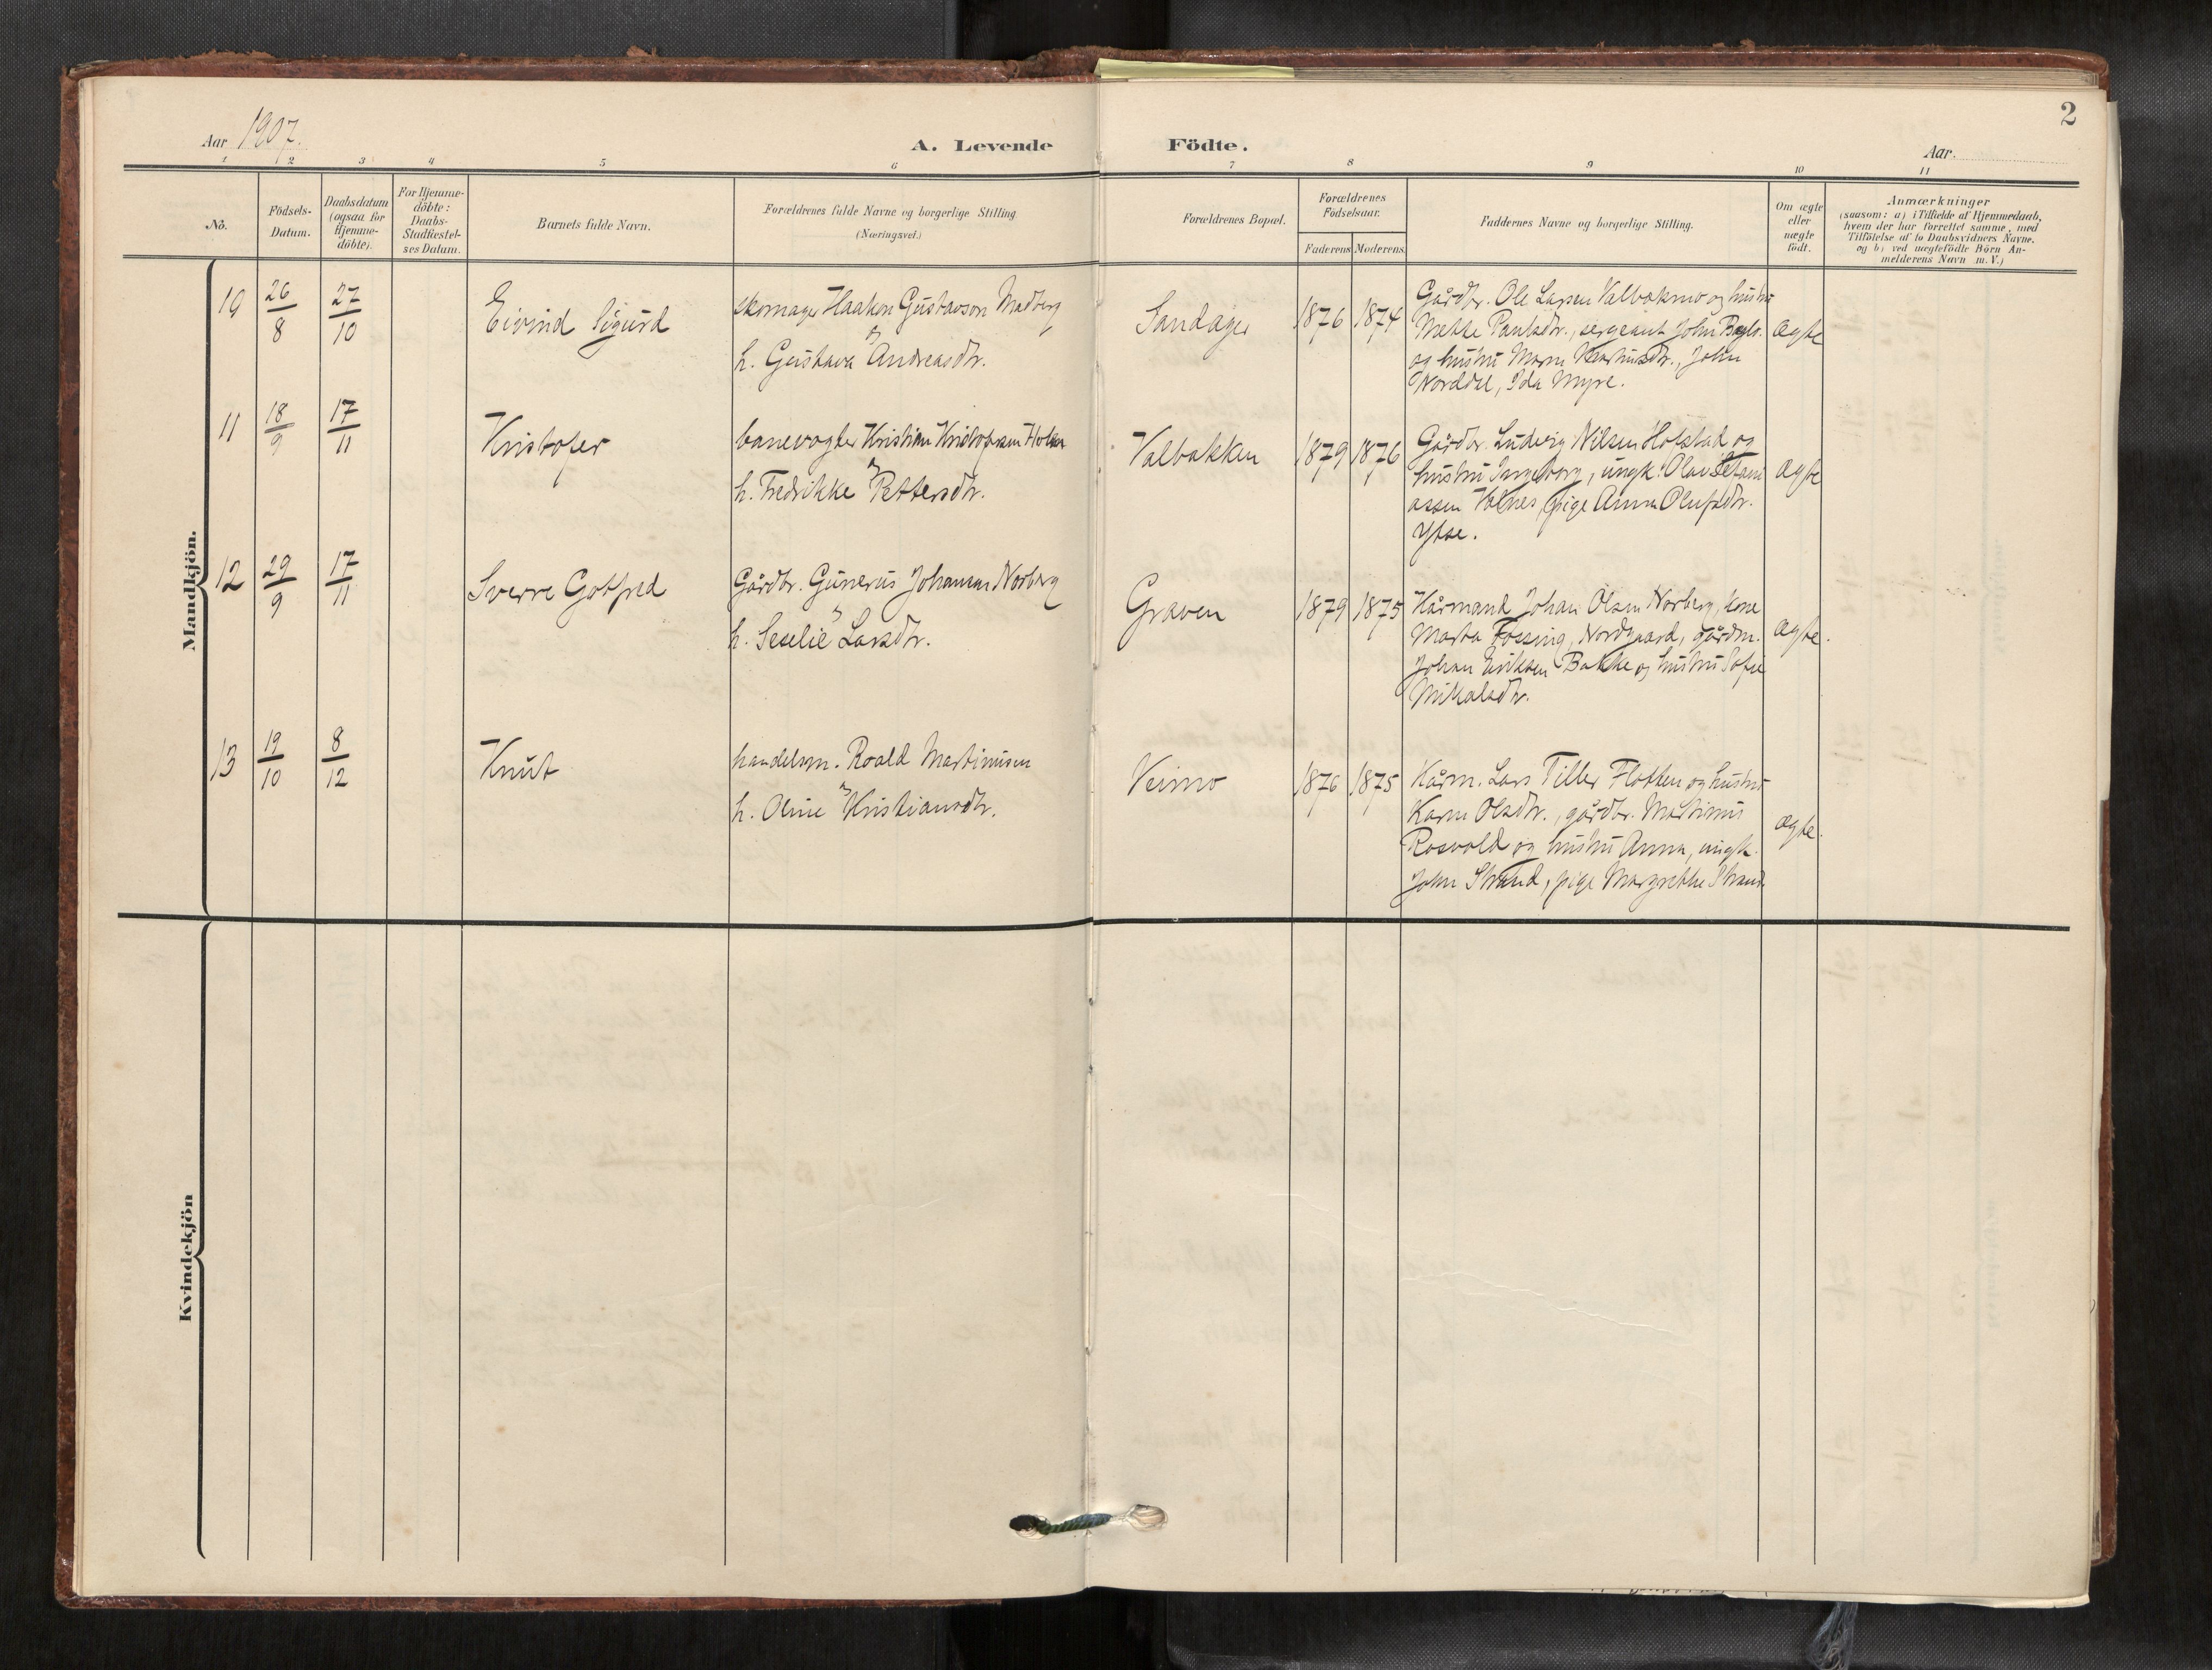 2
Aar 1907.
A. Levende Födte.
Aar.
1 2 3 4 5 6 7 8 9 10 11
No.
Födsels-
Datum.
Daabsdatum
(ogsaa for
Hjemme-
döbte).
For Hjemme-
döbte:
Daabs-
Stadfæstel-
ses Datum.
Barnets fulde Navn.
Forældrenes fulde Navne og borgerlige Stilling
(Næringsvei.)
Forældrenes Bopæl.
Forældrenes
Födselsaar.
Faderens Moderens
Faddernes Navne og borgerlige Stilling.
Om ægte
eller
uægte
födt.
Anmærkninger
(saasom: a) i Tilfælde af Hjemmedaab,
hvem der har forrettet samme, med
Tilföielse af to Daabsvidners Navne.
og b) ved uægtefödte Börn An-
melderens Navn m. V.)
Mandkjön.
10 26/8 27/10
Eivind Sigurd
skomager Haakon Gustavson Madberg
og
h. Gustava Andreasdtr.
Sandager
1876 1874
Gårdbr. Ole Larsen Valbakmo og hustru
Mette Paulsdtr., sergeant John
og hustru Maren John
Norddal, Ida Myre.
ægte
11 18/9 17/11
Kristofer
banevogter Kristian Kristofersen
og
h. Fredrikke Pettersdtr.
Valbakken
1879 1876
Gårdbr. Ludvig Nilsen Hofstad og
hustru Ingeborg, ungk. Olav Stefani
assen Valnes, pige Anna Olufsdtr.
Ydse.
ægte
12 29/9 17/11
Sverre Gotfred
Gårdbr. Gunerus Johansen Norberg
og
h. Seselie Larsdtr.
Graven
1879 1875
Kårmand Johan Olsen Norberg, kone
Marta Fossing, Nordgaard, gårdm.
Johan Eriksen Bakke og hustru Sofie
Mikalsdtr.
ægte.
13 19/10 8/12
Knut
handelsm. Roald Martinusen
og
h. Oline Kristiansdtr.
Veimo
1876 1875
Kårm. Lars Tiller Flotten og hustru
Karen Olsdtr., gårdbr. Martinus
Rosvold og hustru Anna, ungk.
John Strand, pige Margrethe Strand
ægte.
Kvindekjön